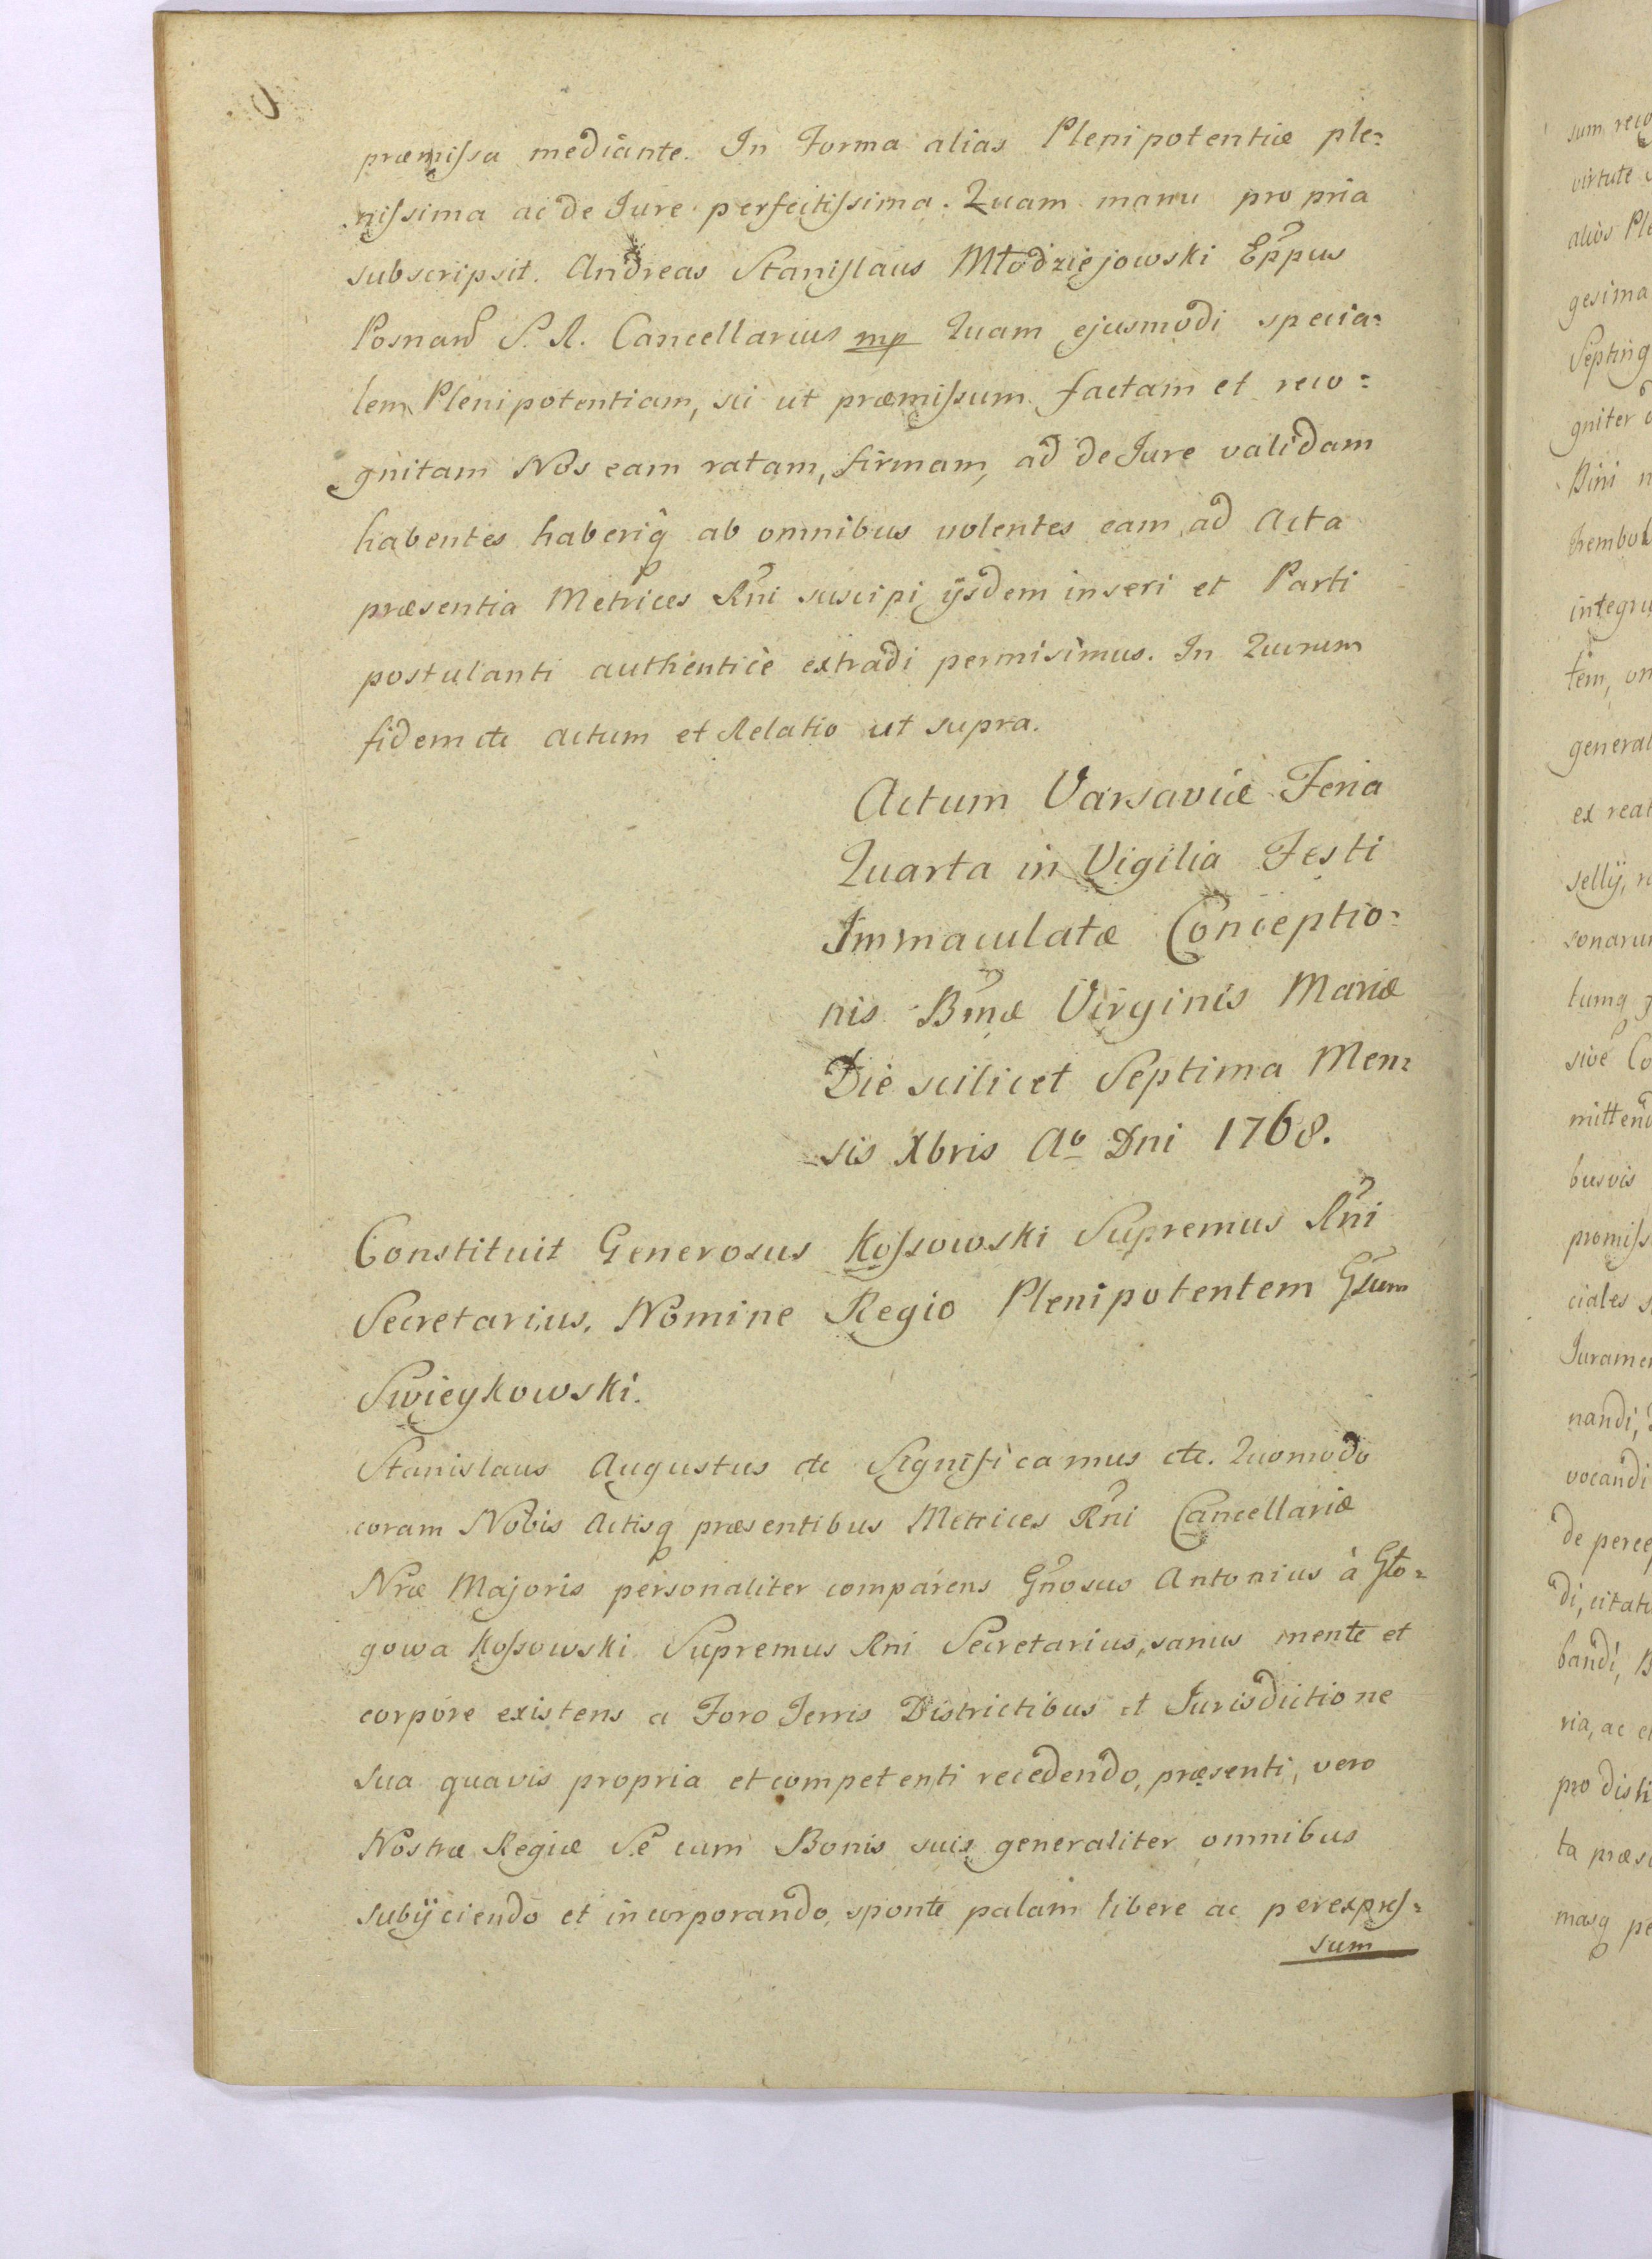 præmissa mediante. In Forma alias Plenipotentiæ ple=
nissima ac de Jure perfectissima. Quam manu propria
subscripsit. Andreas Stanislaus Młodziejowski Eppus
Posnan S. R. Cancellarius mp Quam ejusmodi specia=
lem Plenipotentiam, sci ut præmissum factam et reco=
gnitam Nos eam ratam, firmam, ad de Jure validam
habentes haberiq ab omnibus volentes eam ad Acta
præsentia Metrices Rni suscipi ijsdem inseri et Parti
postulanti authentice extradi permisimus. In Quorum
fidem etc Actum et Relatio ut supra.
Actum Varsaviæ Feria
Quarta in Vigilia Festi
Immaculatæ Conceptio=
nis Bmæ Virginis Mariæ
Die scilicet Septima Men=
sis Xbris Ao Dni 1768.
Constituit Generosus Kossowski Supremus Rni
Secretarius, Nomine Regio Plenipotentem Gsum
Swieykowski.
Stanislaus Augustus etc Significamus etc. Quomodo
coram Nobis Actisq præsentibus Metrices Rni Cancellariæ
Nræ Majoris personaliter comparens Gnosus Antonius à Gło=
gowa Kossowski Supremus Rni Secretarius, sanus mente et
corpore existens a Foro Terris Districtibus et Jurisdictione
sua quavis propria et competenti recedendo, præsenti, vero
Nostræ Regiæ Se cum Bonis suis generaliter omnibus
subijciendo et incorporando, sponte palam libere ac perexpres=
sum